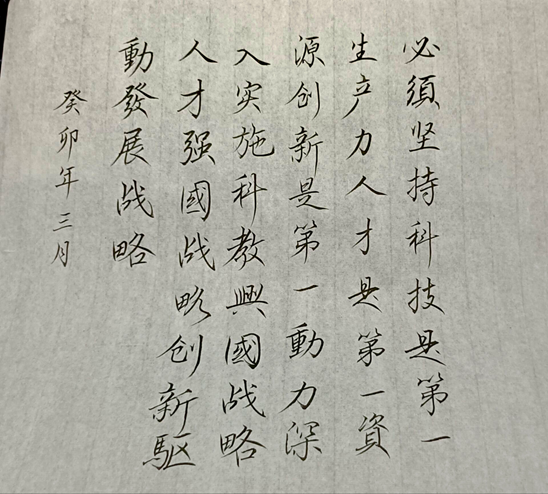 必須坚持科技是第一
生产力人才是第一資
源创新是第一動力深
入实施科教興國战略
人才强國战略创新驱
動發展战略
癸卯年三月